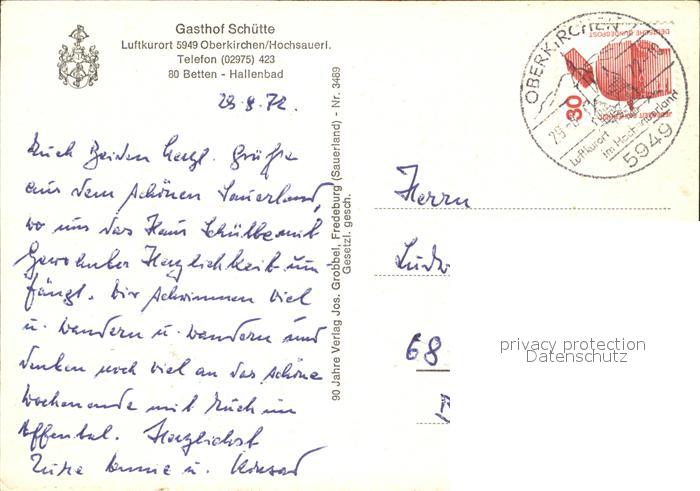 Gasthof Schütte
Luftkurort 5949 Oberkirchen/Hochsauerl.
Telefon (02975) 423
80 Betten - Hallenbad
29.9.72.
Euch Beiden herzl. Grüße
aus dem schönen Sauerland,
wo uns das Haus Schütte mit
gewohnter Herzlichkeit um
fängt. Wir schwimmen viel
u. wandern u. wandern und
denken noch viel an das schöne
Wochenende mit Euch im
Affental. Herzlichst
Eure Annie u. Konrad
90 Jahre Verlag Jos. Grobbel, Fredeburg (Sauerland) - Nr. 3489
Gesetzl. gesch.
OBERKIRCHEN
Luftkurort
im Hochsauerland
5949
DEUTSCHE BUNDESPOST
30
Herrn
Ludw
68
privacy protection
Datenschutz